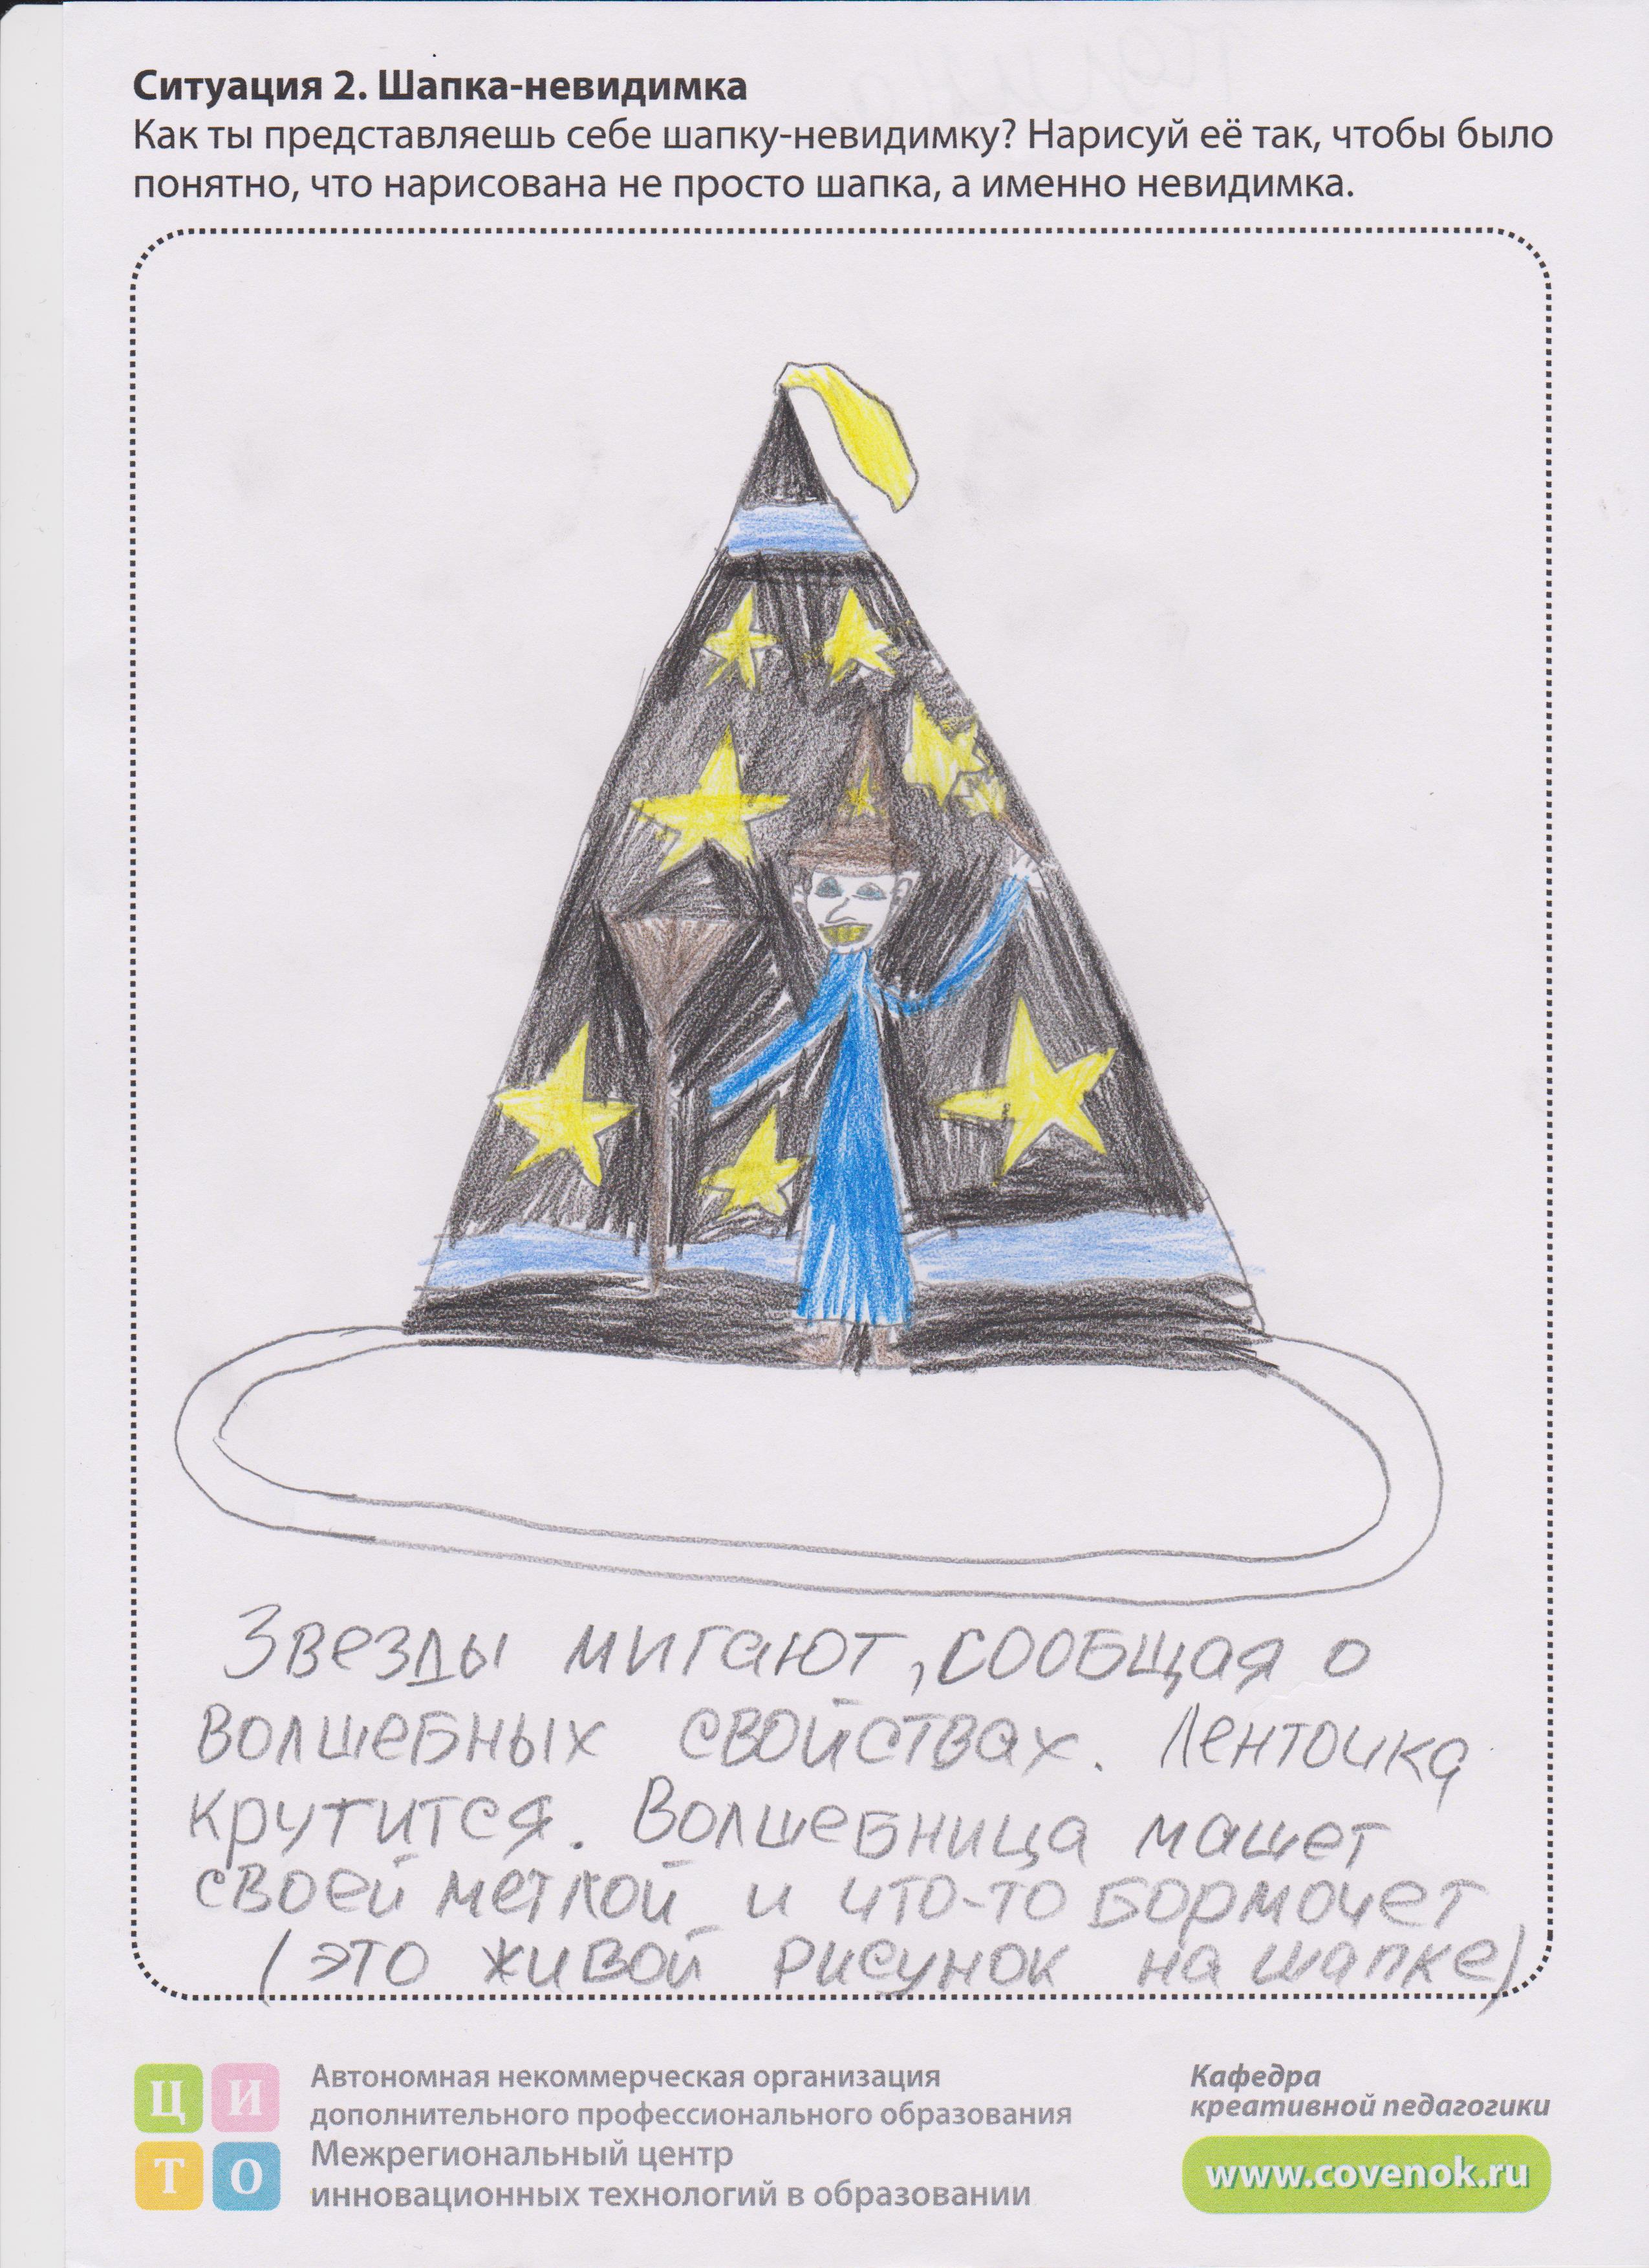 Ситуация 2. Шапка-невидимка
Как ты представляешь себе шапку-невидимку? Нарисуй её так, чтобы было
понятно, что нарисована не просто шапка, а именно невидимка.
Звезды мигают, сообщая о
волшебных свойствах. Ленточка
крутится. Волшебница машет
своей метлой и что-то бормочет
(это живой рисунок на шапке)
ЦИ
ТО
Автономная некоммерческая организация
дополнительного профессионального образования
Межрегиональный центр
инновационных технологий в образовании
Кафедра
креативной педагогики
www.covenok.ru